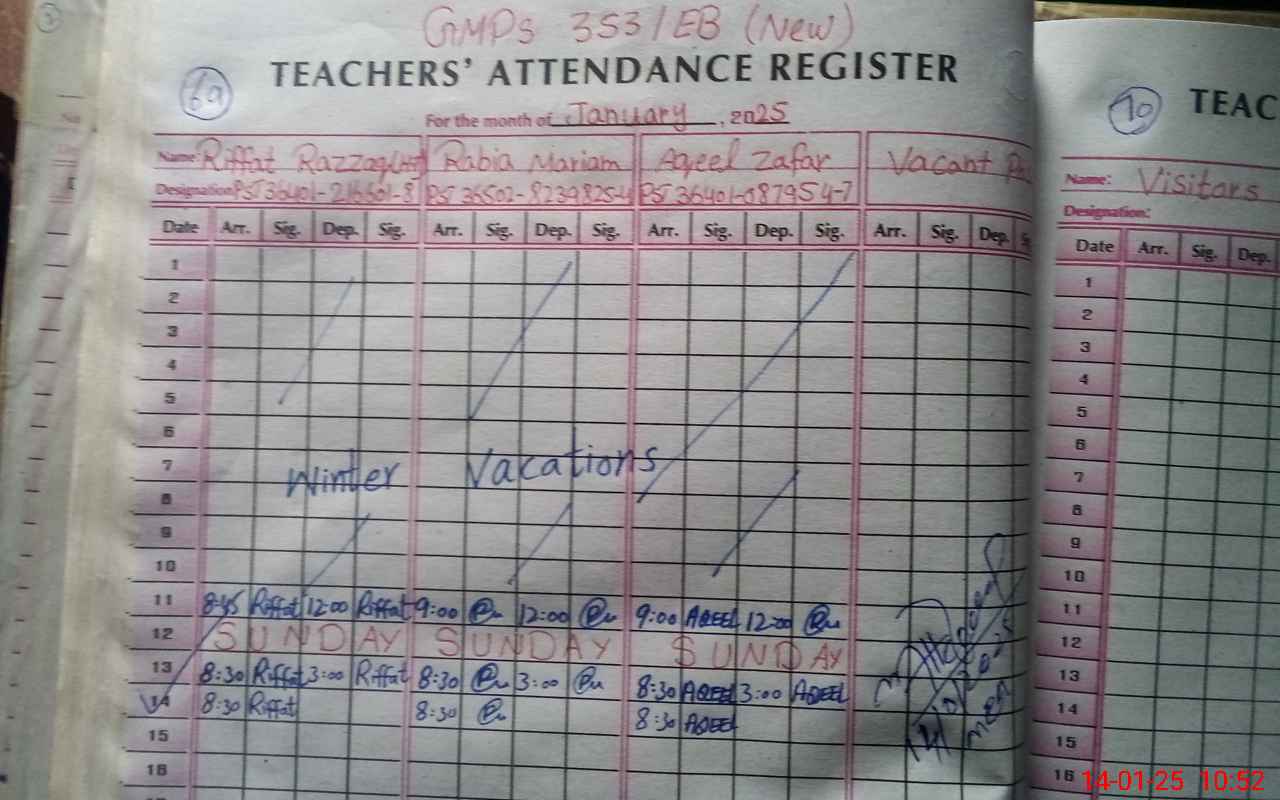 GMPS 353/EB (New)
TEACHERS' ATTENDANCE REGISTER
69
For the month of January, 2025
Name: Riffat Razzaq Rabia Mariam Aqeel Zafar Vacant
Designation: PST 36502-8239825-4 PST 36401-087954-7
Date Arr. Sig. Dep. Sig. Arr. Sig. Dep. Sig. Arr. Sig. Dep. Sig. Arr. Sig. Dep. S
1
2
3
4
5
6
7
Winter Vacations
8
9
10
11 8:45 Riffat 12:00 Riffat 9:00 12:00 9:00 AQEEL 12:00
12 SUNDAY SUNDAY SUNDAY
13 8:30 Riffat 3:00 Riffat 8:30 3:00 8:30 AQEEL 3:00 AQEEL
14 8:30 Riffat 8:30 8:30 AQEEL
15
16
70
TEAC
Name: Visitors
Designation:
Date Arr. Sig. Dep.
1
2
3
4
5
6
7
8
9
10
11
12
13
14
15
16
14-01-25 10:52